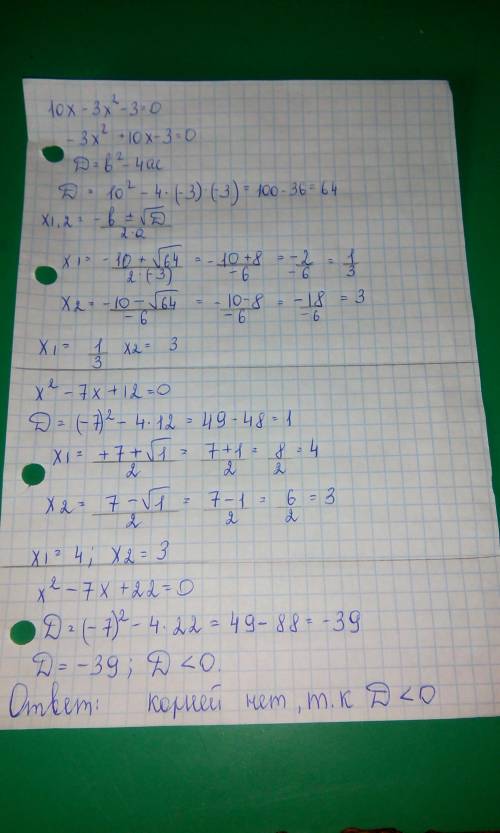 10x - 3x² - 3 = 0
-3x² + 10x - 3 = 0
D = b² - 4ac
D = 10² - 4 · (-3) · (-3) = 100 - 36 = 64
x1,2 = (-b ± √D)/(2·a)
x1 = (-10 + √64)/(2·(-3)) = (-10+8)/(-6) = (-2)/(-6) = 1/3
x2 = (-10 - √64)/(-6) = (-10-8)/(-6) = (-18)/(-6) = 3
x1 = 1/3 x2 = 3
x² - 7x + 12 = 0
D = (-7)² - 4 · 12 = 49 - 48 = 1
x1 = (+7 + √1)/2 = (7+1)/2 = 8/2 = 4
x2 = (7 - √1)/2 = (7-1)/2 = 6/2 = 3
x1 = 4; x2 = 3
x² - 7x + 22 = 0
D = (-7)² - 4 · 22 = 49 - 88 = -39
D = -39; D < 0.
Ответ: корней нет, т.к D < 0